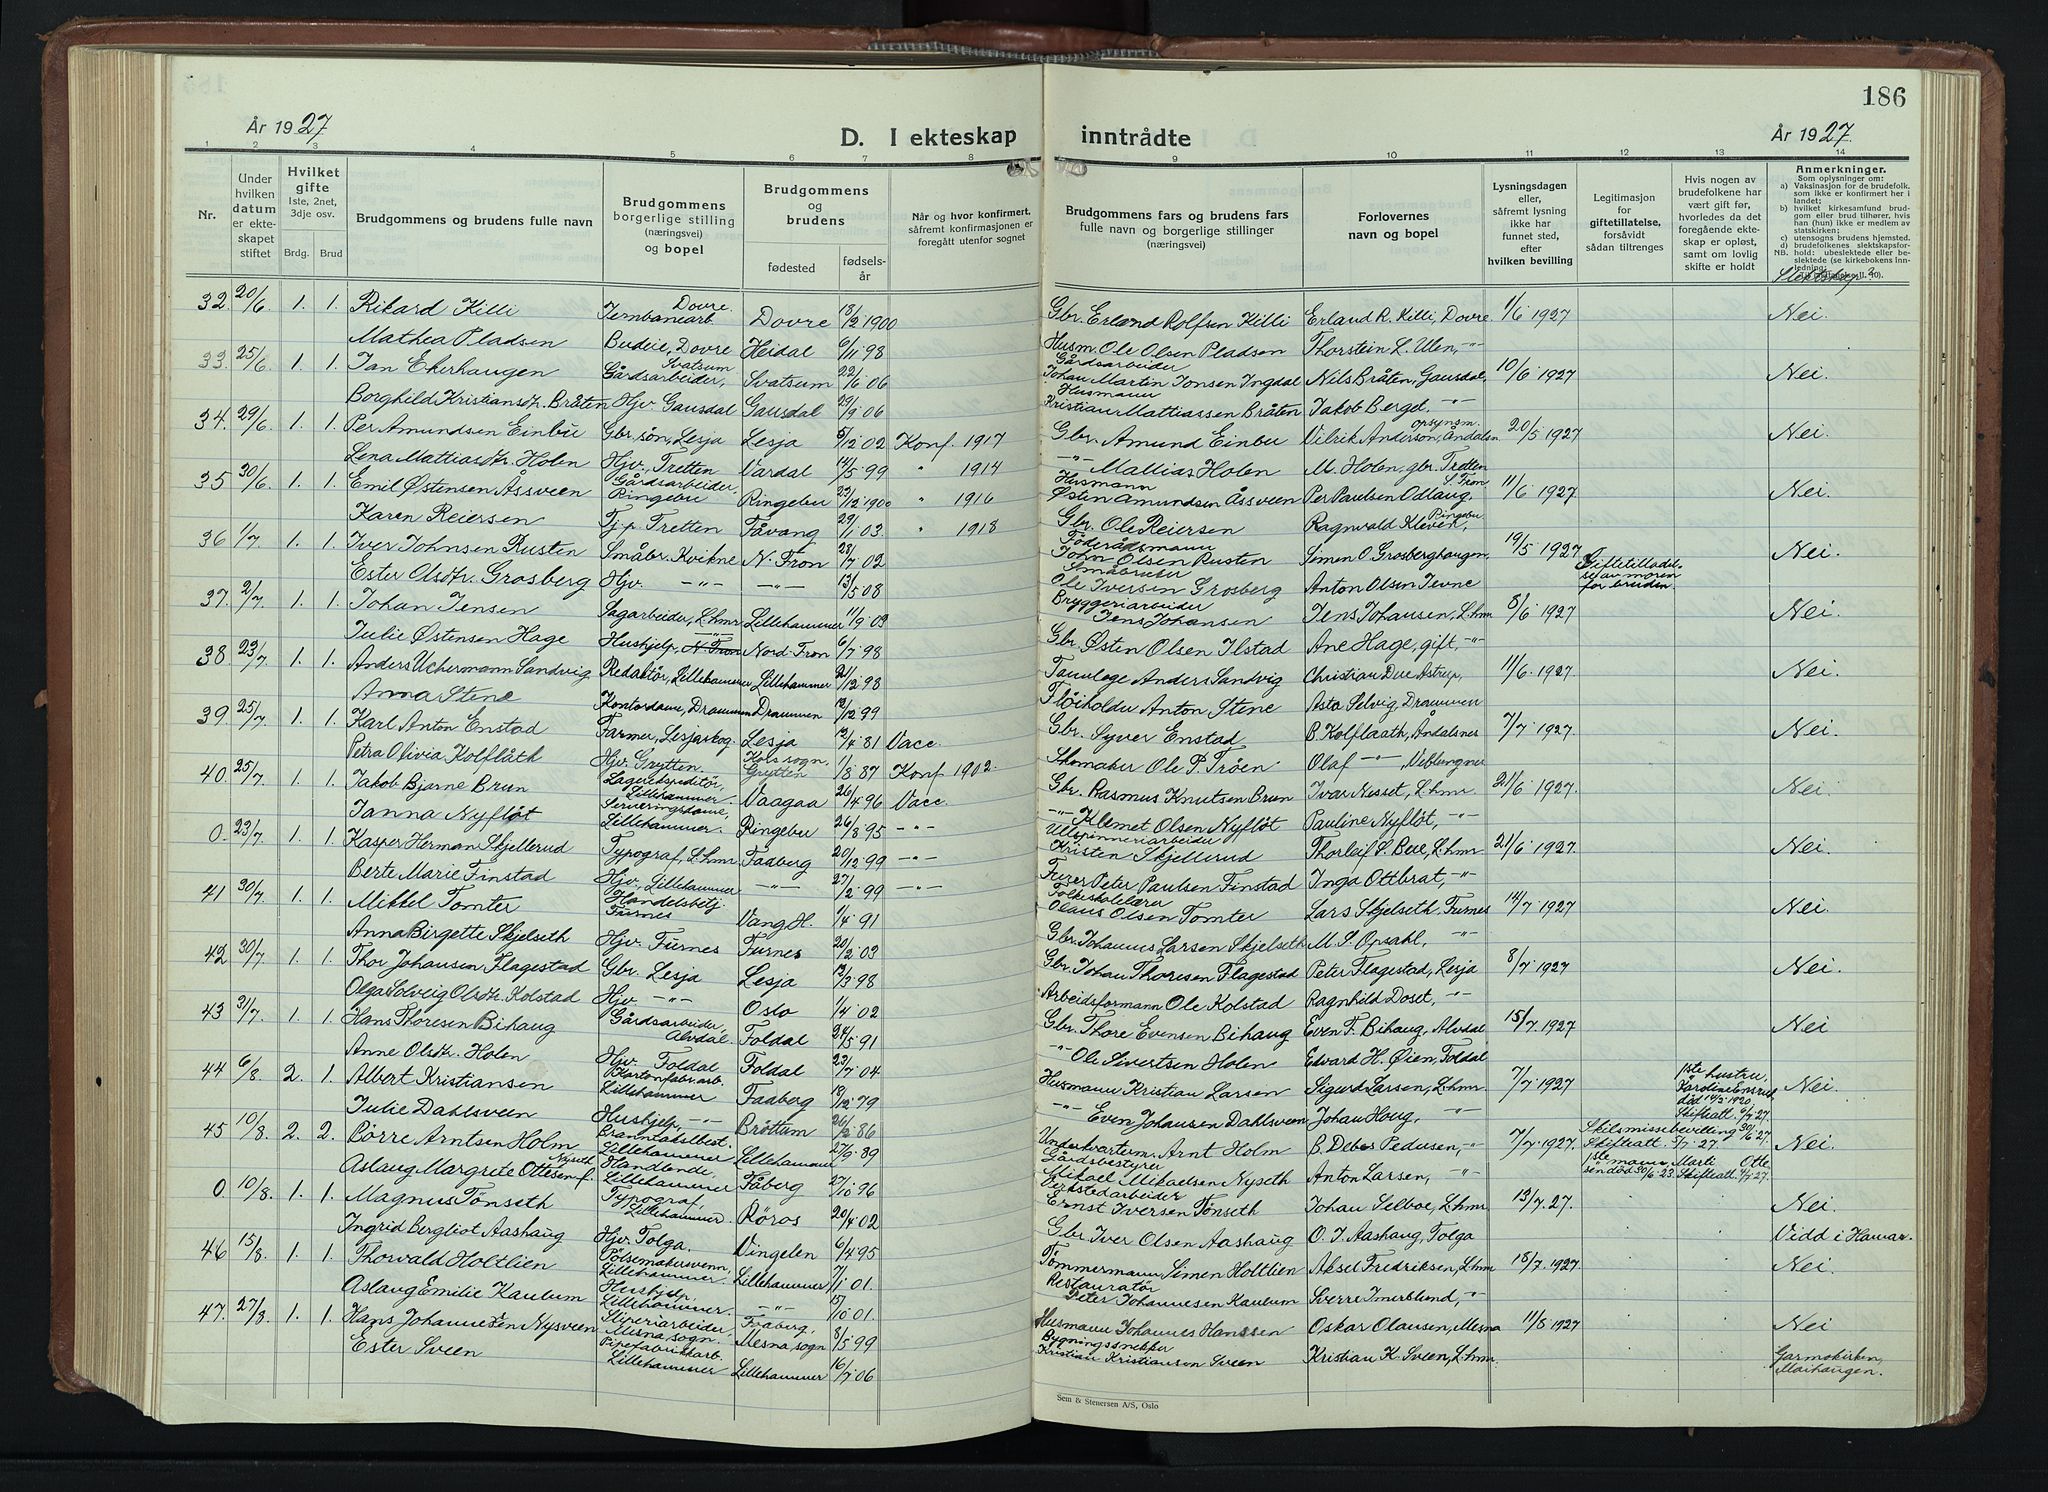 186
År 1927
D. I ekteskap inntrådte
År 1927.
1 2 3 4 5 6 7 8 9 10 11 12 13 14
Nr.
Under hvilken datum er ekteskapet stiftet
Hvilket gifte 1ste, 2net, 3dje osv.
Brdg. Brud
Brudgommens og brudens fulle navn
Brudgommens borgerlige stilling (næringsvei) og bopel
Brudgommens og brudens
fødested fødselsår
Når og hvor konfirmert, såfremt konfirmasjonen er foregått utenfor sognet
Brudgommens fars og brudens fars fulle navn og borgerlige stillinger (næringsvei)
Forlovernes navn og bopel
Lysningsdagen eller, såfremt lysning ikke har funnet sted, efter hvilken bevilling
Legitimasjon for giftetillatelse, forsåvidt sådan tiltrenges
Hvis nogen av brudefolkene har vært gift før, hvorledes da det foregående ekteskap er opløst, samt om lovlig skifte er holdt
Anmerkninger.
Som oplysninger om:
a) Vaksinasjon for de brudefolk, som ikke er konfirmert her i landet;
b) hvilket kirkesamfund brudgom eller brud tilhører, hvis han (hun) ikke er medlem av statskirken;
c) utensogns brudens hjemsted.
d) brudefolkenes slektskapsforhold: ubeslektede eller beslektede
Slektskap?
32. 20/6 1. 1. Rikard Killi Dovre. Jernbanearb. Dovre 18/2 1900 Gbr. Erland Rolfsen Killi Erland R. Killi, Dovre 1/6 1927 Nei.
Mathea Pladsen Budeie, Dovre Heidal 6/11 98 Husm. Ole Olsen Pladsen Thorstein L. Ulen, -"-
33. 25/6 1. 1. Jan Ekerhaugen Svatsum Gårdsarbeider, Svatsum 22/6 06 Gårdsarbeider Johan Martin Jonsen Ingdal Nils Bråten, Gausdal, 10/6 1927 Nei.
Borghild Kristiansdtr. Bråten Hjv. Gausdal Gausdal 29/9 06 Husmann Kristian Mattiassen Bråten Jakob Berget, -"-
34. 29/6 1. 1. Per Amundsen Einbu Gbr.søn, Lesja Lesja 5/12 02 Konf. 1917 Gbr. Amund Einbu Vilrik Anderson, opsynsm. Åndalsn 20/5 1927 Nei.
Lena Mattiasdtr. Holen Hjv. Tretten Vardal 14/5 99 " 1914 -"- Mattias Holen M. Holen, gbr. Tretten
35 30/6 1. 1. Emil Østensen Åssveen Gårdsarbeider. Ringebu Ringebu 23/12 1900 " 1916 Husmann Østen Amundsen Åssveen Per Paulsen Odlaug, S. Fron 11/6 1927 Nei.
Karen Reiersen Tj.p. Tretten Fåvang 29/1 03 " 1918 Gbr. Ole Reiersen Ragnvald Kleven, Ringebu
36 1/7 1. 1. Iver Johnsen Rusten Småbr. Kvikne N. Fron 28/7 02 Føderådsmann John Olsen Rusten Simen O. Grosberghaugen 19/5 1927 Nei.
Ester Olsdtr. Grosberg Hjv. -"- -"- 13/5 08 Småbruker Ole Iversen Grosberg Anton Olsen Jevne Giftetilladelse av moren for bruden.
37. 2/7 1. 1. Johan Jensen Sagarbeider, L.hmr Lillehammer 11/9 09 Bryggeriarbeider Jens Johansen Jens Johansen, L.hmr 8/6 1927 Nei.
Julie Østensen Hage Hushjelp, N. Fron Nord-Fron 6/7 98 Gbr. Østen Olsen Ilstad Ane Hage, gift, -"-
38 23/7 1. 1. Anders Uchermann Sandvig Redaktør, Lillehammer Lillehammer 21/12 98 Tannlege Anders Sandvig Christian Due Astrup, 11/6 1927. Nei.
Anna Stene Kontordame, Drammen Drammen 12/12 99 Fløiholder Anton Stene Asta Selvig, Drammen
39. 25/7 1. 1. Karl Anton Enstad Farmer, Lesjaskog. Lesja 12/4 81 Vacc. Gbr. Syver Enstad B. Kolflaath, Åndalsnes 7/7 1927. Nei.
Petra Olivia Kolflåth Hjv. Grytten Hols sogn, Grytten 1/8 87 Konf. 1902. Skomaker Ole P. Trøen Olaf -"-, Veblungnes
40. 25/7 1. 1. Jakob Bjarne Brun Lagerekspeditør, Lillehammer Vaagaa 26/4 96 Vacc. Gbr. Rasmus Knutsen Brun Ivar Nesset, L.hmr 21/6 1927. Nei.
Janna Nyfløt Serveringsdame, Lillehammer. Ringebu 26/8 95 -"- -"- Klemet Olsen Nyfløt Pauline Nyfløt, -"-
0. 23/7 1. 1. Kasper Herman Skjellerud Typograf, L.hmr Faaberg 20/12 99 -"- Ullspinneriarbeider Kristen Skjellerud Thorleif S. Bee, L.hmr 21/6 1927. Nei.
Berte Marie Finstad Hjv. Lillehammer -"- 27/2 99 -"- Furer Peter Paulsen Finstad Inga Ottbrat, -"-
41 30/7 1. 1. Mikkel Tomter Handelsbetj. Furnes Vang H. 1/4 91 Folkeskolelærer Olaus Olsen Tomter Lars Skjelseth. Furnes 14/7 1927 Nei.
Anna Birgette Skjelseth Hjv. Furnes Furnes 20/2 03 Gbr. Johannes Larsen Skjelseth M. S. Opsahl, -"-
42 30/7 1. 1. Thor Johansen Flagestad Gbr. Lesja Lesja 12/3 98 Gbr. Johan Thoresen Flagestad Peter Flagestad, Lesja 8/7 1927 Nei.
Olga Solveig Olsdtr. Kolstad Hjv. -"- Oslo 1/4 02 Arbeidsformann Ole Kolstad Ragnhild Doset, -"-
43 31/7. 1. 1. Hans Thoresen Bihaug Gårdsarbeider, Alvdal. Foldal 24/5 91 Gbr. Thore Evensen Bihaug Even T. Bihaug, Alvdal 15/7. 1927. Nei
Anne Olsdtr. Holen Hjv. Foldal Foldal 23/7 04 -"- Ole Sivertsen Holen Edvard H. Øien, Foldal
44 6/8 2. 1. Albert Kristiansen Kartonfabr.arb. Lillehammer Faaberg 18/12 79 Husmann Kristian Larsen Sigurd Larsen, L.hmr. 7/7 1927 1ste hustru, Karoline død 14/3 1920. Skifteatt. 6/7 27. Nei.
Julie Dahlsveen Hushjelp, -"- Brøttum 26/2 86 -"- Even Johansen Dahlsveen Johan Houg, -"-
45 10/8. 2. 2. Børre Arntsen Holm Branntakelbest. Lillehammer Lillehammer 27/9 89 Underkvarterm. Arnt Holm B. Debes Pedersen, -"- 7/7 1927. Skilsmissebevilling 30/6 27. Skifteatt. 5/7. 27. Nei.
Aslaug Margrete Ottesen f. Nyseth Handlende, Lillehammer Fåberg 27/10 96 Gårdsbestyrer Mikael Mikaelsen Nyseth Anton Larsen, -"- 1ste mann Marti Ottesen død 30/6 23. Skifteatt. 4/7 27.
0 10/8. 1. 1. Magnus Tønseth Typograf, Lillehammer. Røros 20/4 02 Verkstedarbeider Ernst Iversen Tønseth Johan Selboe, L.hmr. 13/7. 27. Nei.
Ingrid Bergliot Aashaug Hjv. Tolga. Vingelen 6/4 95 Gbr. Iver Olsen Aashaug O. I. Aashaug, Tolga Vidd i Hamar.
46 15/8. 1. 1. Thorvald Holtlien Pølsemakersvenn, Lillehammer Lillehammer 7/1 01. Tømmermann Simen Holtlien Aksel Fredriksen, L.hmr 18/7. 1927. Nei.
Aslaug Emilie Kaubum Hushjelp, Lillehammer. -"- 15/10 01. Restauratør Peter Johannesen Kaubum Sverre Imerslund, -"-
47. 27/8 1. 1. Hans Johannesen Nysveen Sliperiarbeider Mesna sogn. Faaberg, Mesna sogn 8/5 99 Husmann Johannes Hanssen Oskar Olausen, Mesna 11/8 1927 Nei
Ester Sveen Pipefabrikkarb. Lillehammer Lillehammer 16/7 06 Bygningssnekker Kristian Kristiansen Sveen Kristian K. Sveen, L.hmr. Garmokirken, Maihaugen.
Sem & Stenersen A/S, Oslo